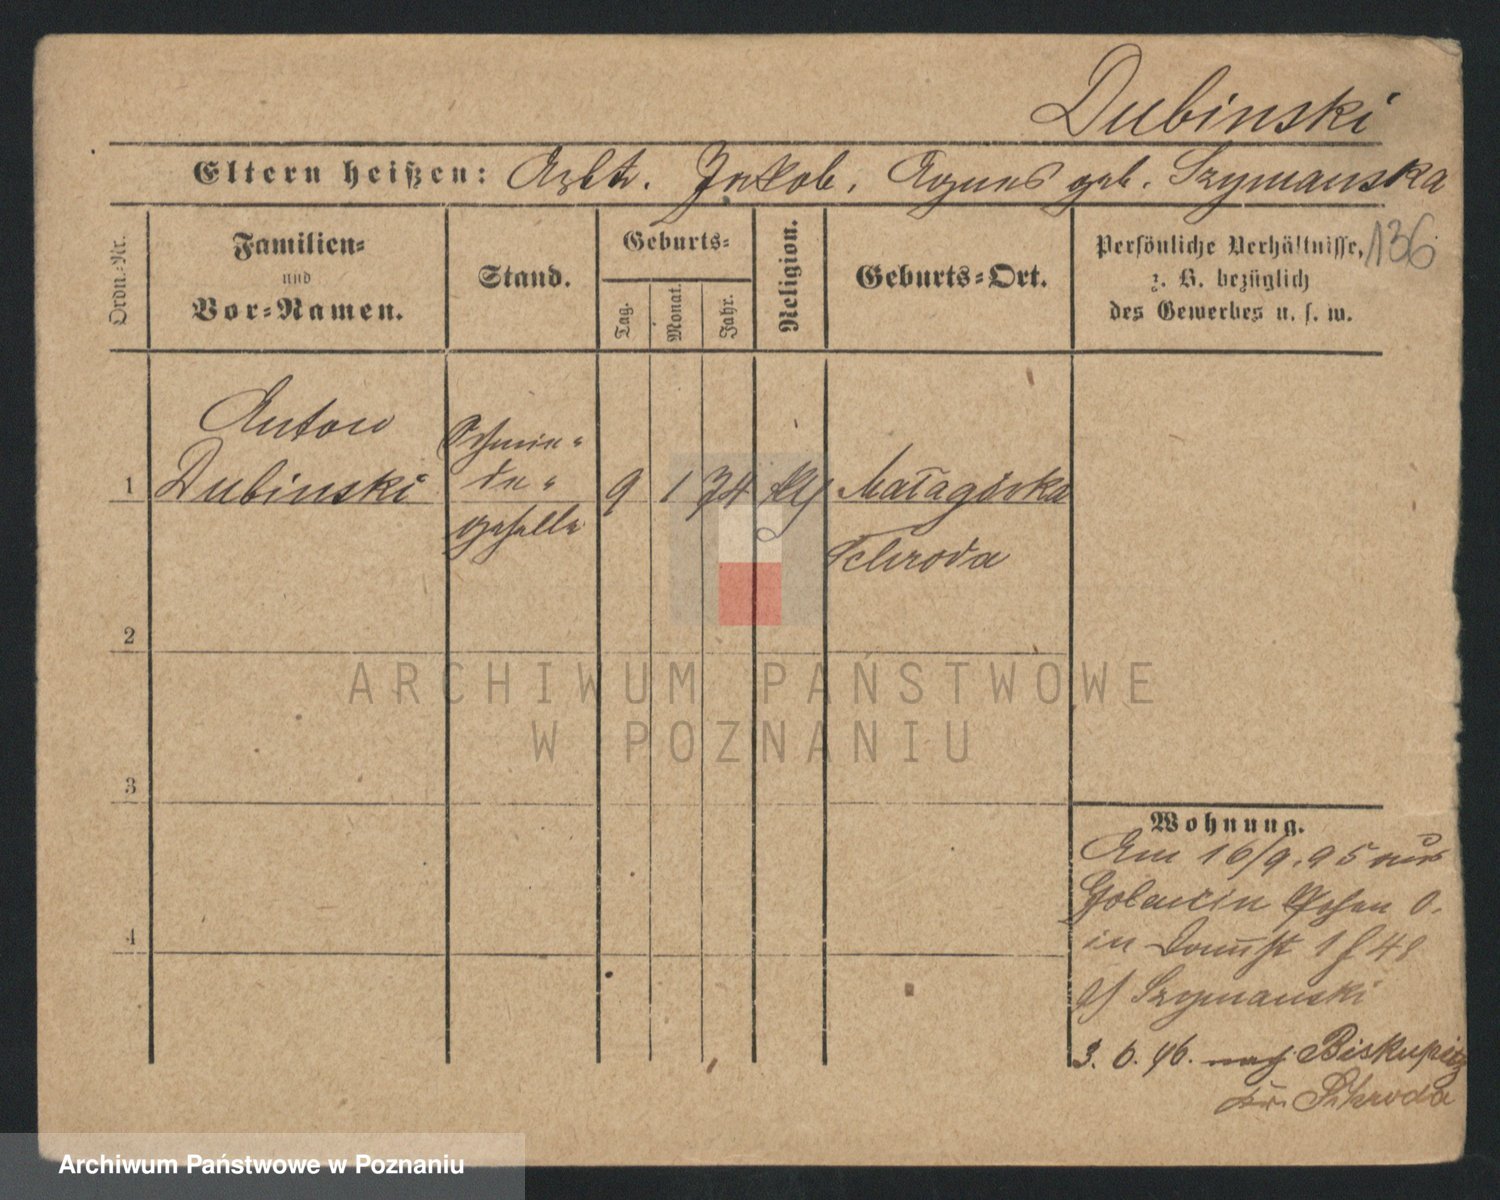 Dubinski
Eltern heißen: Arbtr. Jakob, Agnes geb. Szymanska
136
Ordn.-Nr.
Familien-
und
Vor-Namen.
Stand.
Geburts-
Tag.
Monat.
Jahr.
Religion.
Geburts-Ort.
Persönliche Verhältnisse,
z. B. bezüglich
des Gewerbes u. s. w.
Anton
Schmie-
1 Dubinski de- 9 1 74 kth Małagórka
geselle
Schroda
2
ARCHIWUM PAŃSTWOWE
W POZNANIU
3
Wohnung.
Am 16/9.95 aus
Golencin Posen O.
in Domst 1 48
b/ Szymanski
4
3. 6. 96. nach Biskupitz
Kr. Schroda
Archiwum Państwowe w Poznaniu